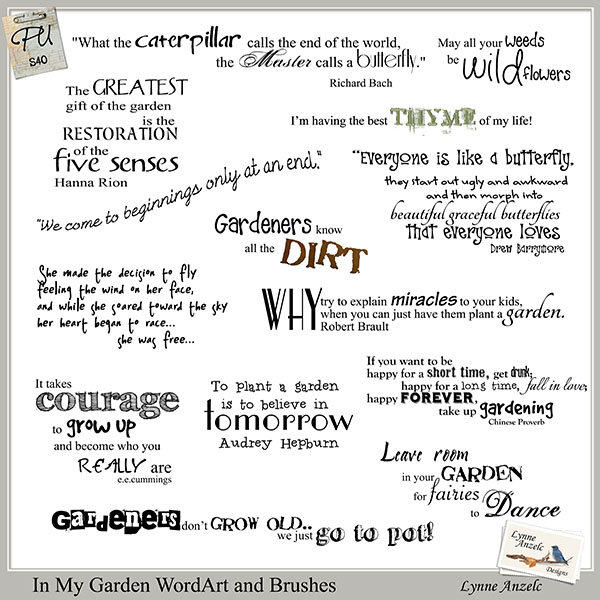 FU
S4O
"What the caterpillar calls the end of the world,
the Master calls a butterfly."
Richard Bach
May all your weeds
be wild flowers
The GREATEST
gift of the garden
is the
RESTORATION
of the
five senses
Hanna Rion
I'm having the best THYME of my life!
"We come to beginnings only at an end."
"Everyone is like a butterfly,
they start out ugly and awkward
and then morph into
beautiful graceful butterflies
that everyone loves
Drew Barrymore
Gardeners know
all the DIRT
She made the decision to fly
feeling the wind on her face,
and while she soared toward the sky
her heart began to race...
she was free...
WHY try to explain miracles to your kids,
when you can just have them plant a garden.
Robert Brault
It takes
courage
to grow up
and become who you
REALLY are
e.e.cummings
To plant a garden
is to believe in
tomorrow
Audrey Hepburn
If you want to be
happy for a short time, get drunk;
happy for a long time, fall in love;
happy FOREVER,
take up gardening
Chinese Proverb
Leave room
in your GARDEN
for fairies
to Dance
Gardeners don't GROW OLD..
we just go to pot!
Lynne
Anzelc
Designs
In My Garden WordArt and Brushes
Lynne Anzelc